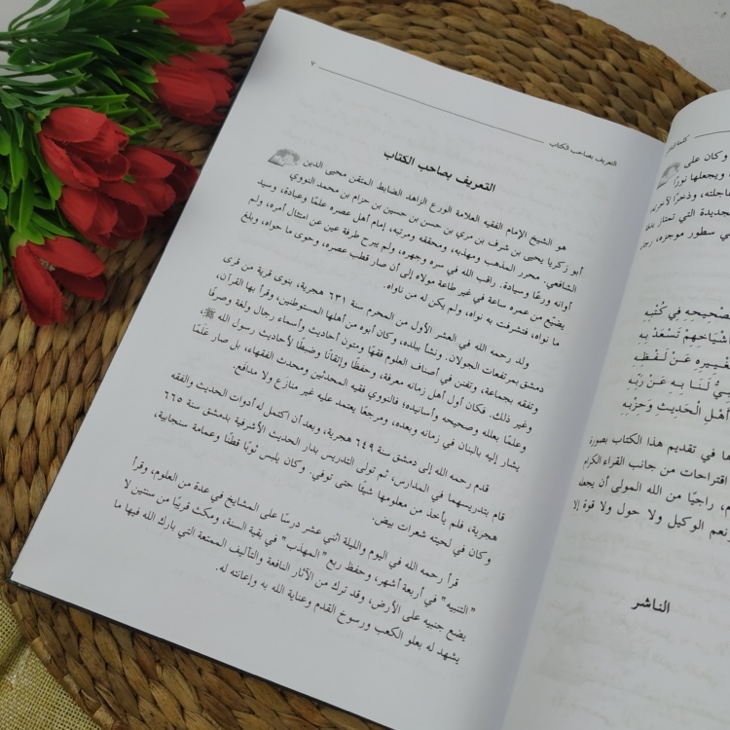 كلمة الناشر
وكان على
ويجعلها نورًا
عاجلته، وذخرًا لآخرته
جديدة التي تمتاز بدق
في سطور موجزه، رجـ
صَحِيحِه فِي كُتْبِهِ
أَشْبَاحَهمْ تَسْعَدْ بِهِ
عَنْ لَفْظِهِ
لَنَا بِهِ عَنْ رَبِّهِ
أَهْلِ الْحَدِيثِ وَحِزْبِهِ
ها في تقديم هذا الكتاب بصورة
اقتراحات من جانب القراء الكرام
، راجيًا من الله المولى أن يجعله
ونعم الوكيل ولا حول ولا قوة إلا
الناشر
التعريف بصاحب الكتاب ٧
التعريف بصاحب الكتاب
هو الشيخ الإمام الفقيه العلامة الورع الزاهد الضابط المتقن محيى الدين
أبو زكريا يحيى بن شرف بن مري بن حسن بن حسين بن حزام بن محمد النووي
الشافعي. محرر المذهب ومهذبه، ومحققه ومرتبه، إمام أهل عصره علمًا وعبادة، وسيد
أوانه ورعًا وسيادة. راقب الله في سره وجهره، ولم يبرح طرفة عين عن امتثال أمره، ولم
يضيّع من عمره ساعة في غير طاعة مولاه إلى أن صار قطب عصره، وحوى ما حواه، وبلغ
ما نواه، فتشرفت به نواه، ولم يكن له من ناواه.
ولد رحمه الله في العشر الأول من المحرم سنة ٦٣١ هجرية، بنوى قرية من قرى
دمشق بمرتفعات الجولان. ونشأ ببلده، وكان أبوه من أهلها المستوطنين، وقرأ بها القرآن،
وتفقه بجماعة، وتفنن في أصناف العلوم فقهًا ومتون أحاديث وأسماء رجال ولغة وصرفًا
وغير ذلك. فكان أول أهل زمانه معرفة، وحفظًا وإتقانًا وضبطًا لأحاديث رسول الله ﷺ،
وعلمًا بعلله وصحيحه وأسانيده؛ فالنووي فقيه المحدثين ومحدث الفقهاء، بل صار عَلَمًا
يشار إليه بالبنان في زمانه وبعده، ومرجعًا يعتمد عليه غير منازع ولا مدافع.
قدم رحمه الله إلى دمشق سنة ٦٤٩ هجرية، وبعد أن اكتمل له أدوات الحديث والفقه
قام بتدريسهما في المدارس، ثم تولى التدريس بدار الحديث الأشرفية بدمشق سنة ٦٦٥
هجرية، فلم يأخذ من معلومها شيئًا حتى توفي. وكان يلبس ثوبًا قطنًا وعمامة سنجابية،
وكان في لحيته شعرات بيض.
قرأ رحمه الله في اليوم والليلة اثني عشر درسًا على المشايخ في عدة من العلوم، وقرأ
"التنبيه" في أربعة أشهر، وحفظ ربع "المهذب" في بقية السنة، ومكث قريبًا من سنتين لا
يضع جنبيه على الأرض، وقد ترك من الآثار النافعة والتآليف الممتعة التي بارك الله فيها ما
يشهد له بعلو الكعب ورسوخ القدم وعناية الله به وإعانته له.